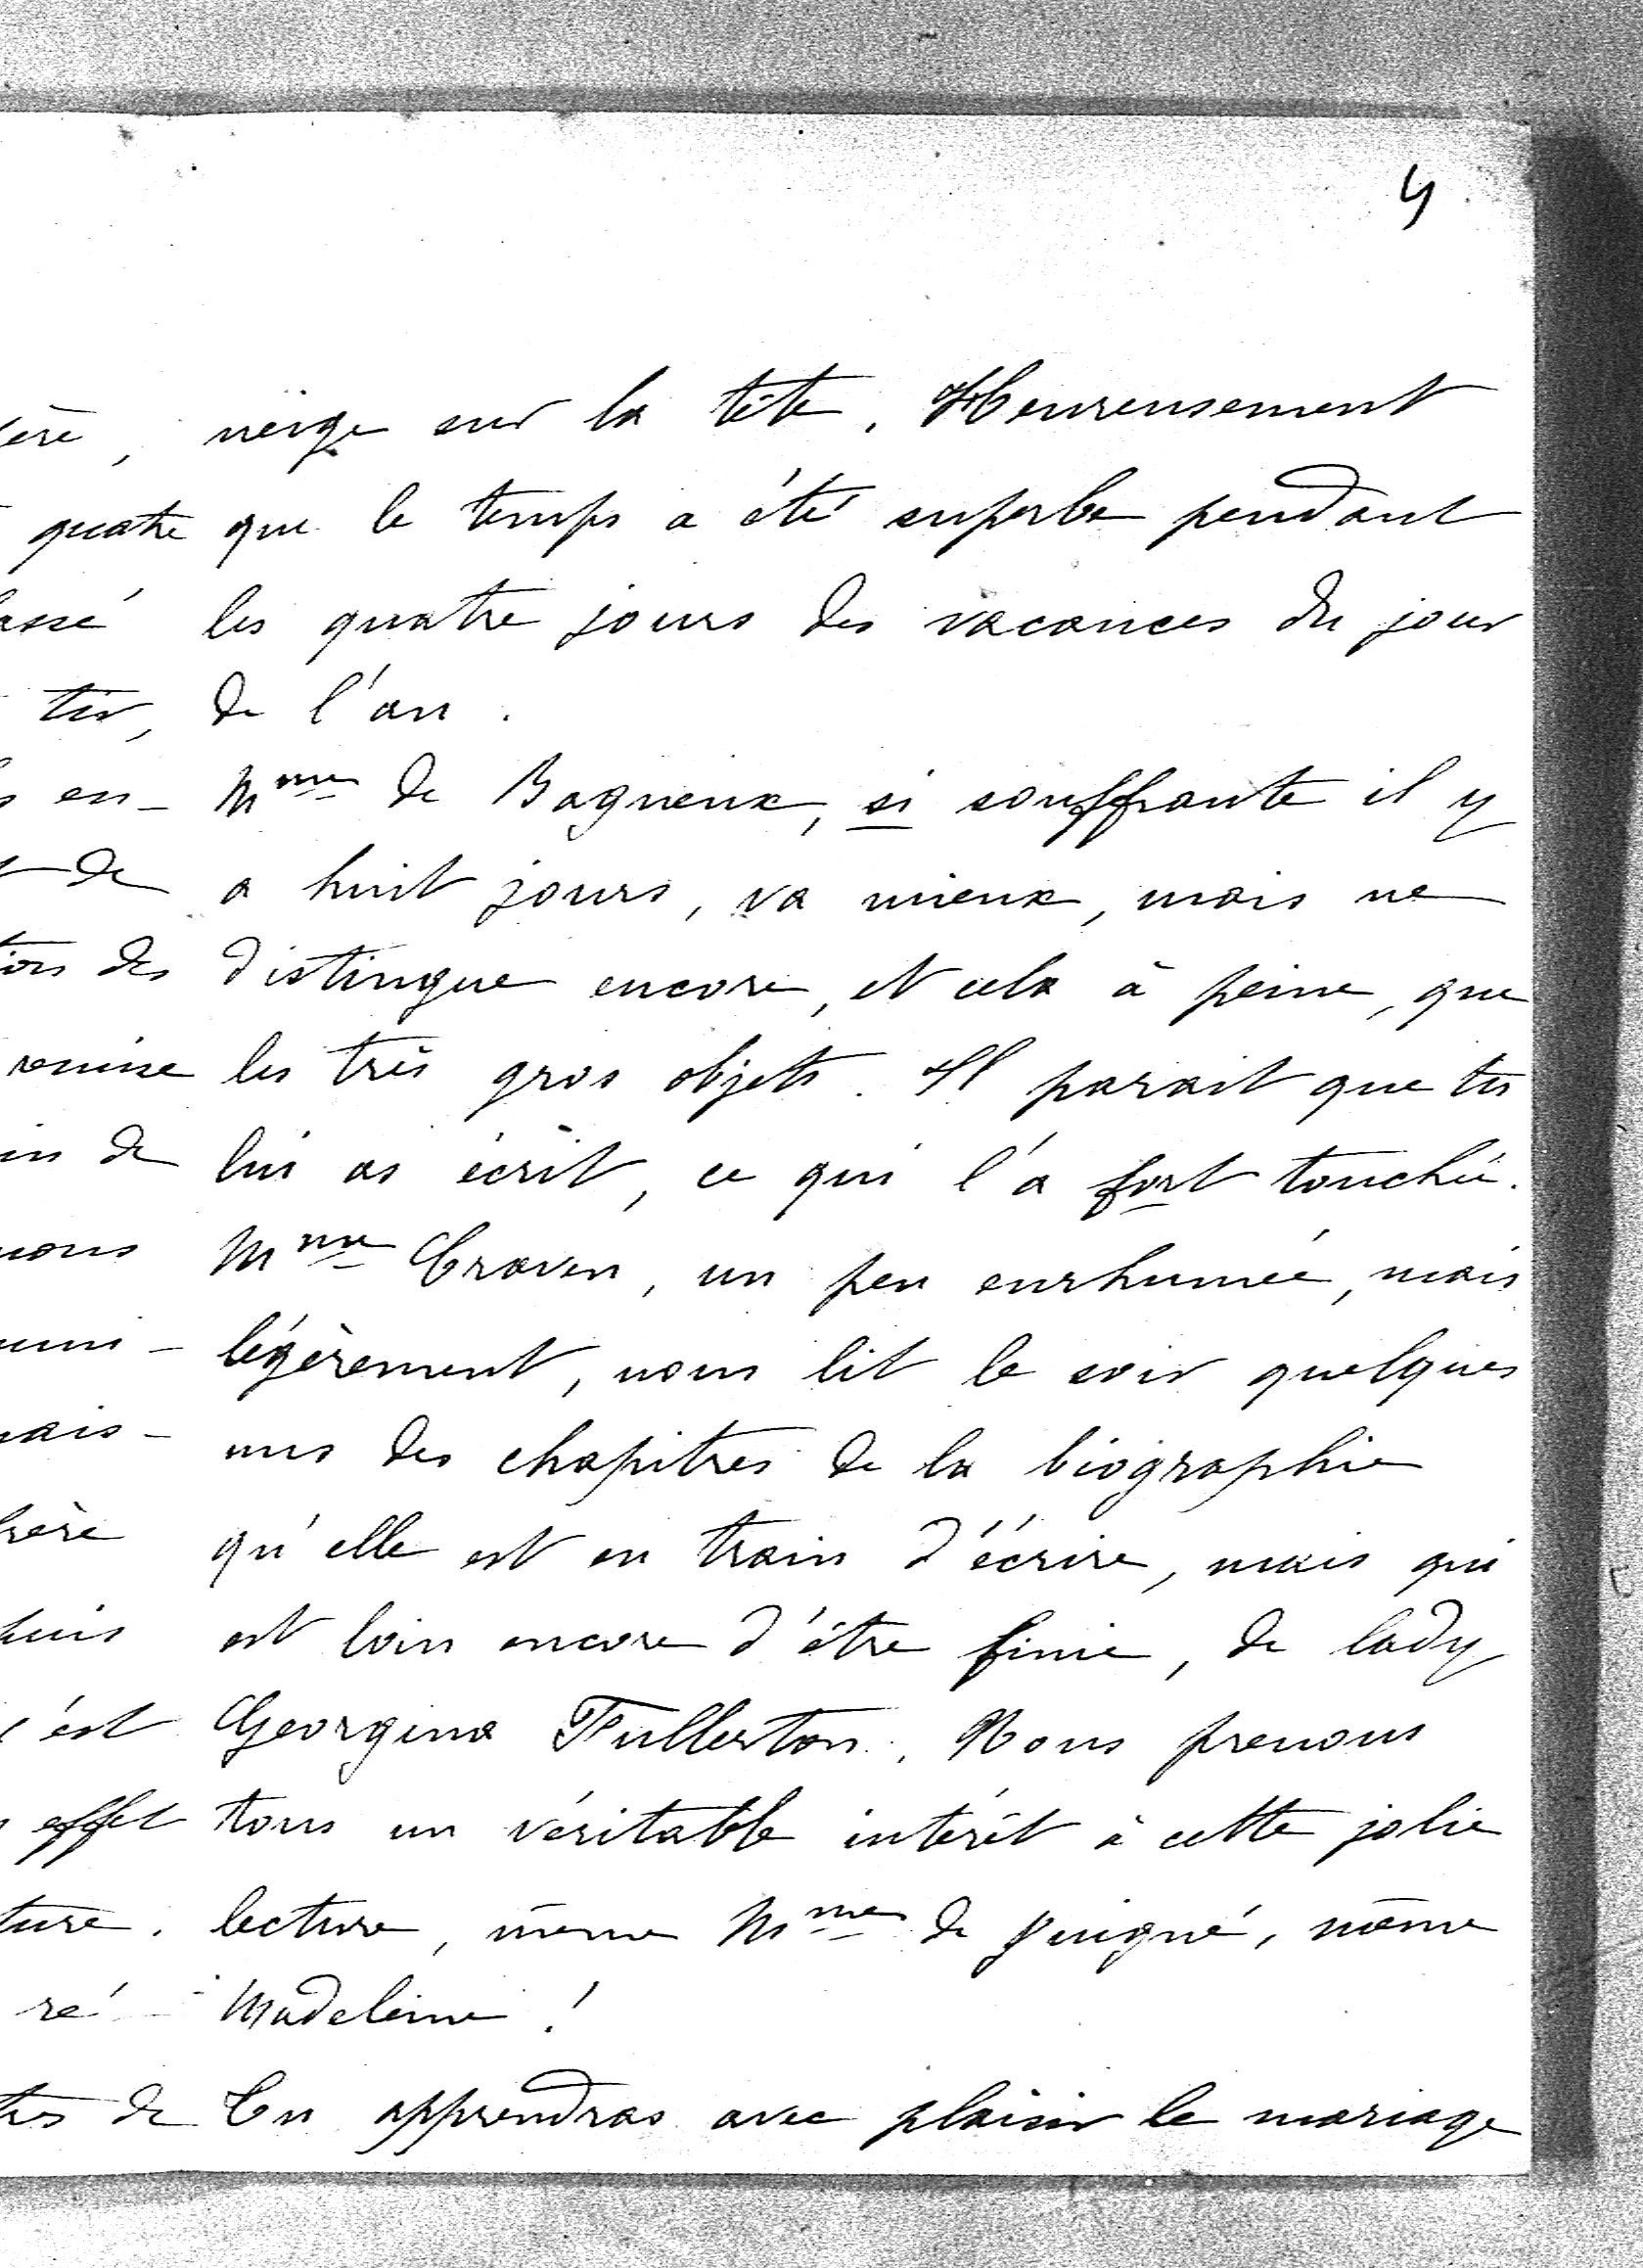 4
neige sur la tête. Heureusement
que le temps a été superbe pendant
les quatre jours des vacances du jour
de l'an.
Mme de Bagneux, si souffrante il y
a huit jours, va mieux, mais ne
distingue encore, et cela à peine, que
les très gros objets. Il parait que tu
lui as écrit, ce qui l'a fort touchée.
Mme Craven, un peu enrhumée, mais
légèrement, nous lit le soir quelques
uns des chapitres de la biographie
qu'elle est en train d'écrire, mais qui
est loin encore d'être finie, de lady
Georgina Fullerton. Nous prenons
tous un véritable intérêt à cette jolie
lecture, même Mme de Juigné, même
Madeleine !
Tu apprendras avec plaisir le mariage
ère,
quatre
assé
tir,
en-
de
tion des
remise
in de
nous
uni-
mais-
frère
puis
c'est
effet
ture.
ré-
tres de